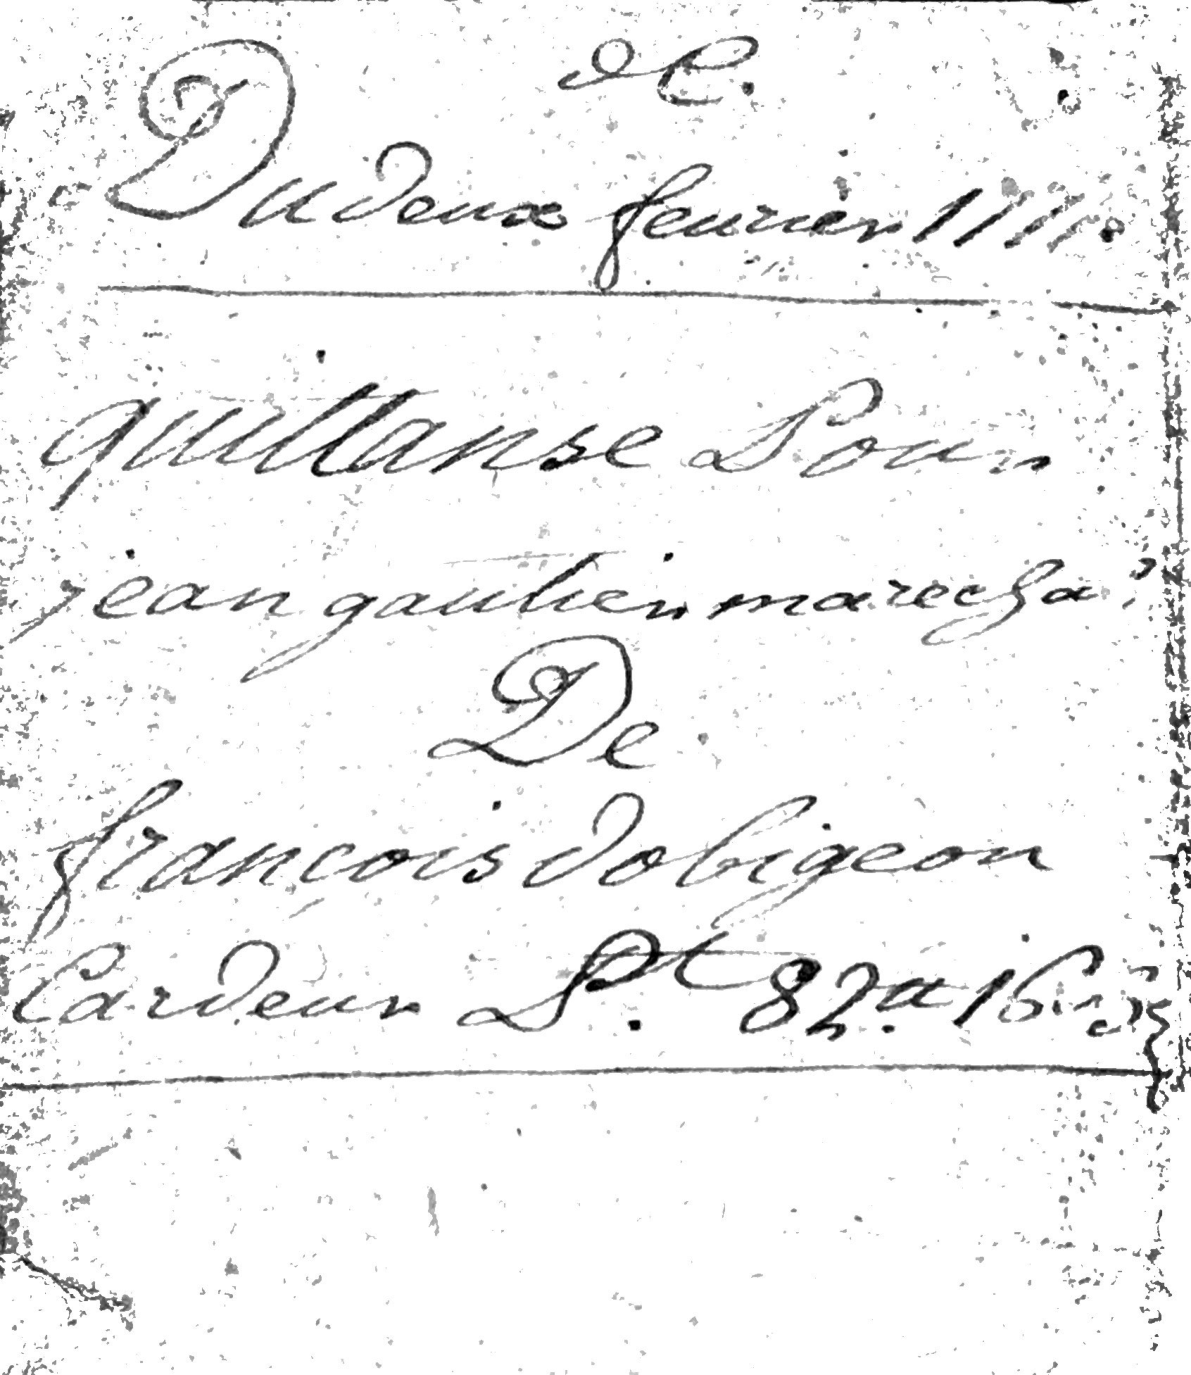 Du deux feurier 177
quittanse Pour
jean gautier marecha
De
françois dobigeon
Cardeur Pt. 82.tt 16